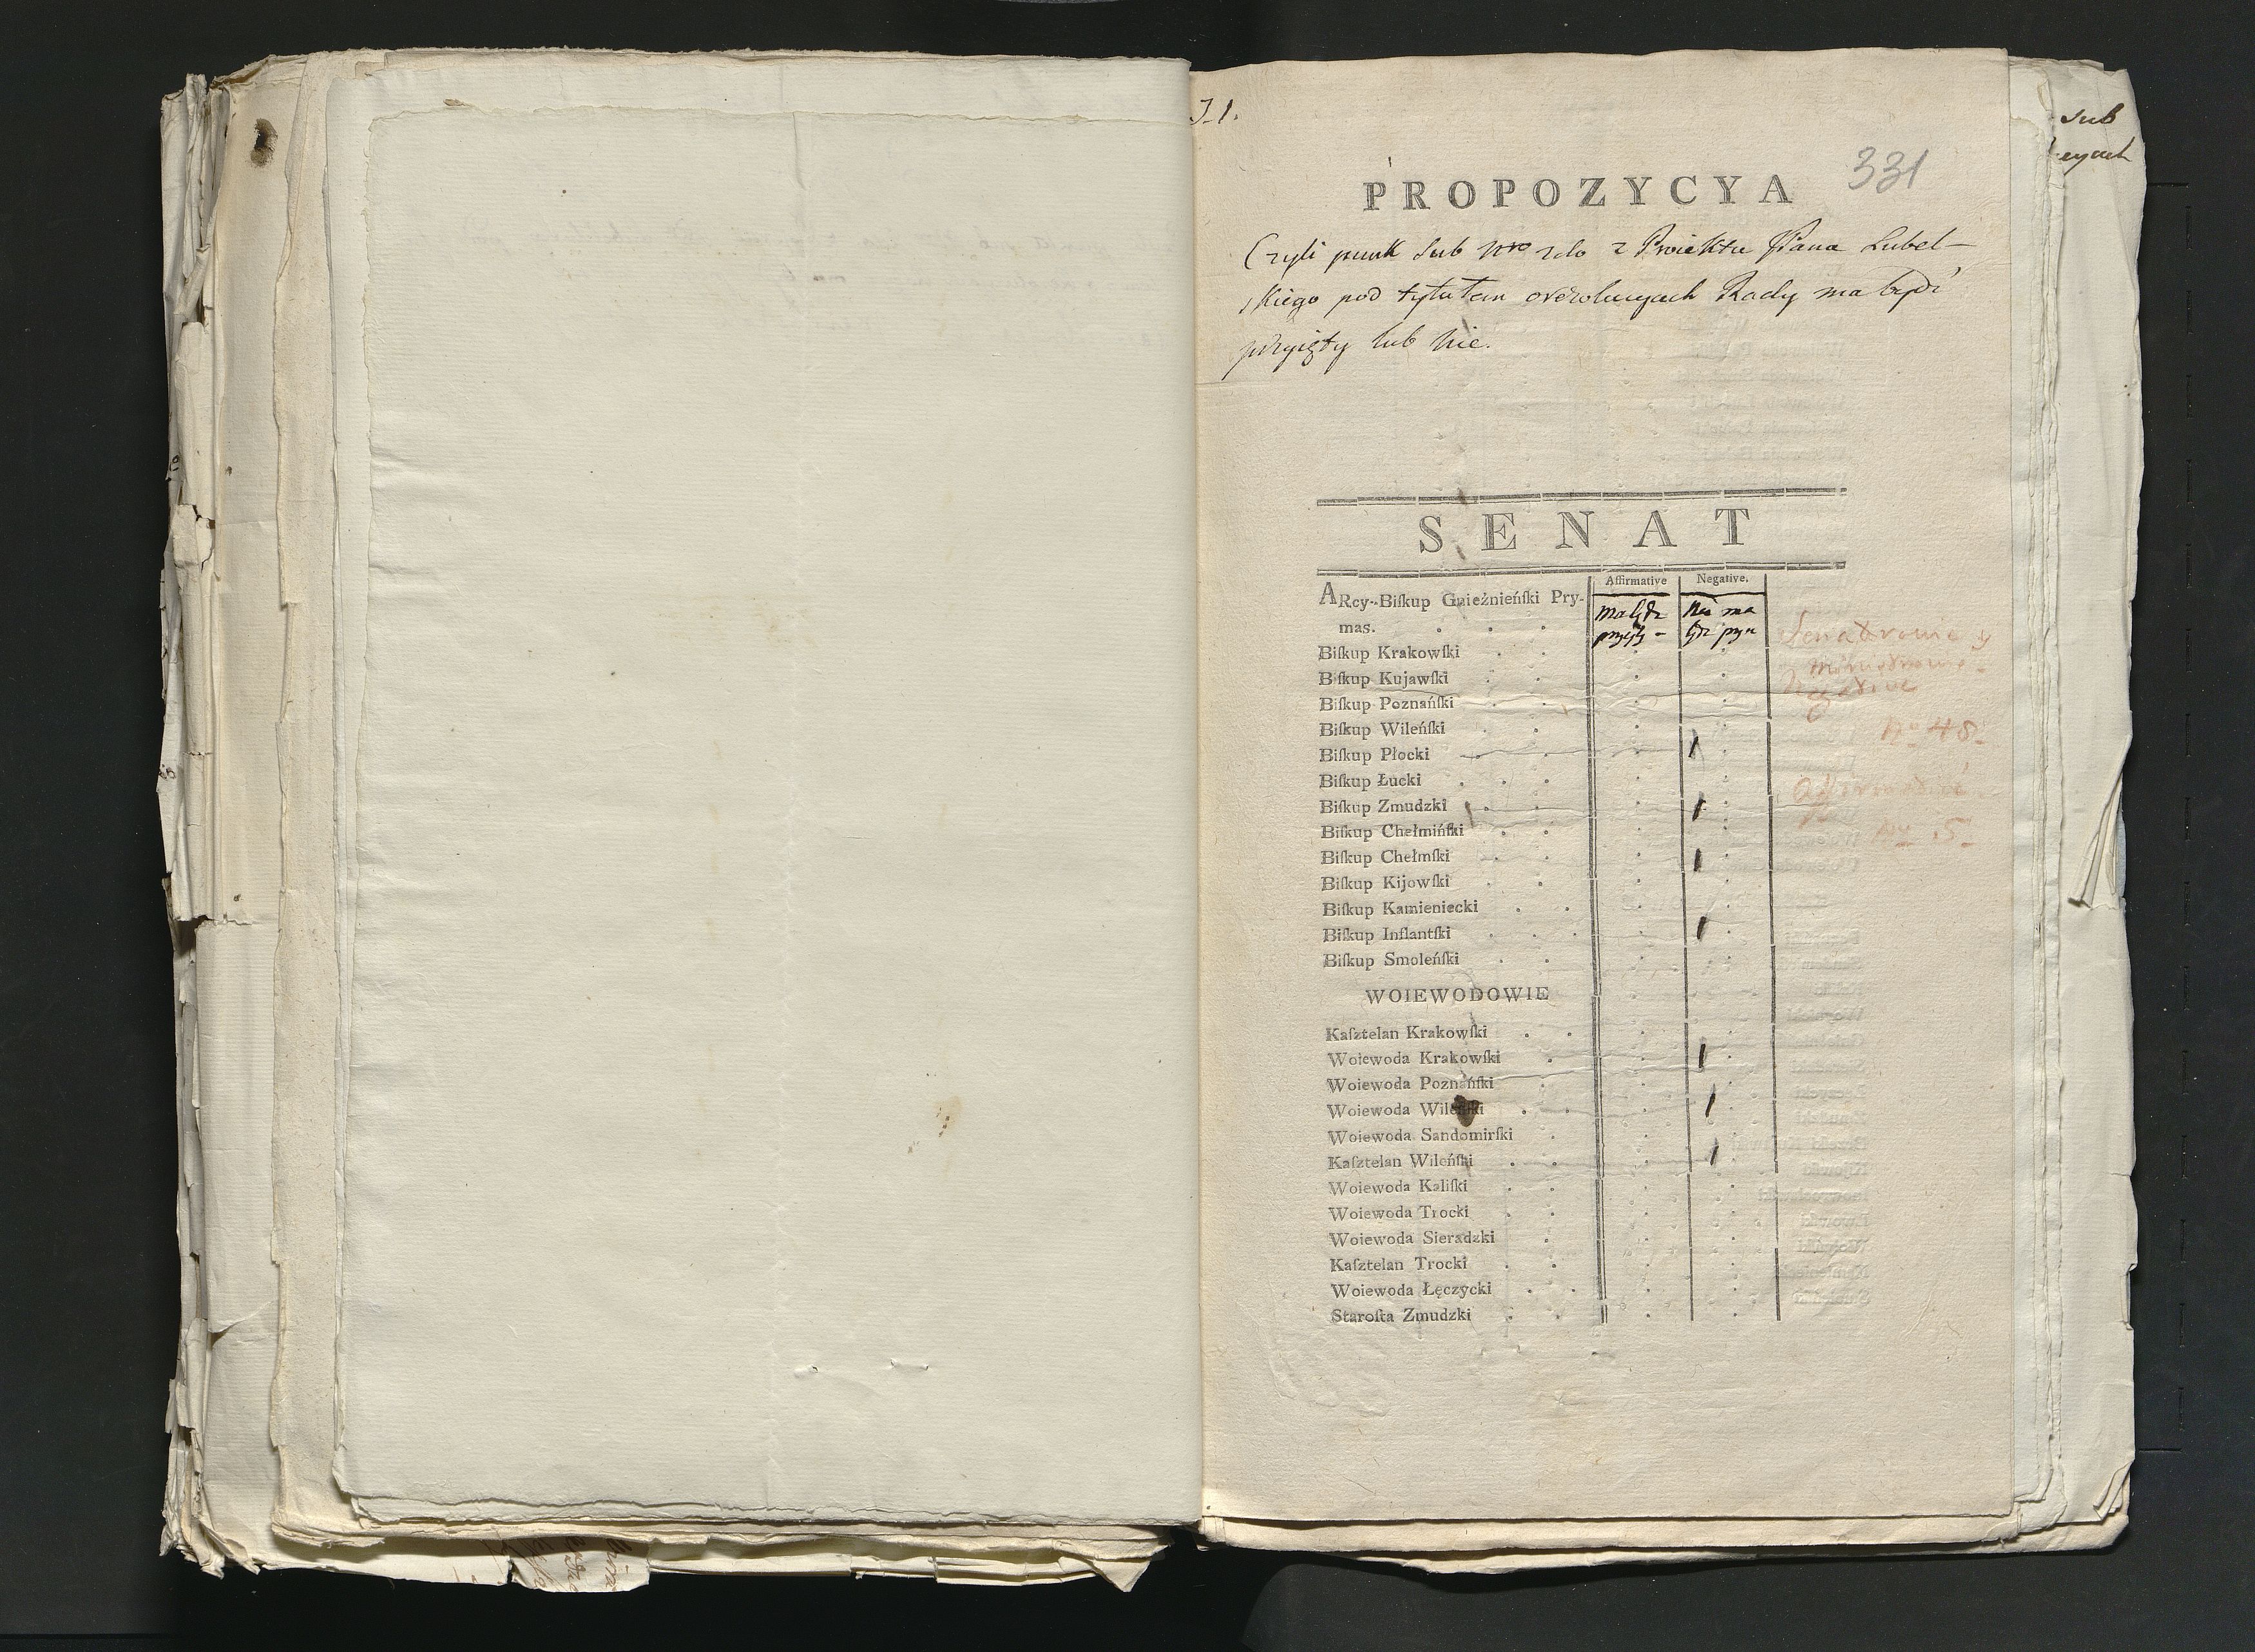 J_1.
331
PROPOZYCYA
Czyli punk sub Nro 2do z Proiektu JPana Lubel-
skiego pod tytułem o rezolucyach Rady ma bydź
przyięty lub Nie.
SENAT
Affirmative Negative.
ARcy-Biſkup Gnieźnieńſki Pry-
mas.
ma bydź Nie ma
przyięty - bydź przyię
Biſkup Krakowſki
Biſkup Kujawſki
Biſkup Poznańſki
Biſkup Wileńſki
Biſkup Płocki 1
Biſkup Łucki
Biſkup Zmudzki 1
Biſkup Chełmińſki
Biſkup Chełmſki 1
Biſkup Kijowſki
Biſkup Kamieniecki
Biſkup Inflantſki 1
Biſkup Smoleńſki
WOIEWODOWIE
Kaſztelan Krakowſki
Woiewoda Krakowſki 1
Woiewoda Poznańſki
Woiewoda Wileńſki 1
Woiewoda Sandomirſki
Kaſztelan Wileńſki 1
Woiewoda Kaliſki
Woiewoda Trocki
Woiewoda Sieradzki
Kaſztelan Trocki
Woiewoda Łęczycki
Staroſta Zmudzki
Senatorowie y
Ministrowie
Negative
No 48.
Affirmative
No 5.
sub